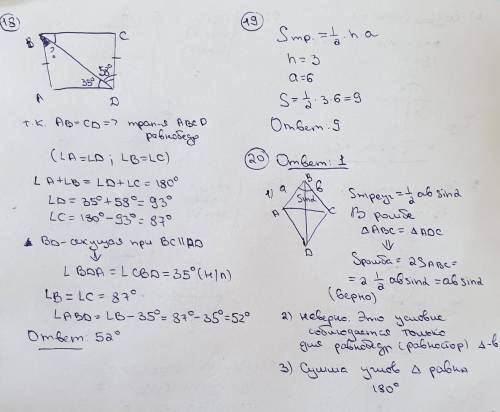 18)
B
C
?
58°
35°
A
D
т.к. AB=CD=? трап-я ABCD
равнобедр
(∠A=∠D ; ∠B=∠C)
∠A+∠B=∠D+∠C=180°
∠D=35°+58°=93°
∠C=180°-93°=87°
BD-секущая при BC||AD
⇓
∠BDA=∠CBD=35°(н/л)
∠B=∠C=87°
∠ABD=∠B-35°=87°-35°=52°
Ответ: 52°
19
Sтр.=1/2·h a
h=3
a=6
S=1/2·3·6=9
Ответ: 9
20 Ответ: 1
1) a
B
б
Sinα
A
C
D
Sтреуг=1/2 ab sinα
В ромбе
△ABC=△ADC
⇓
Sромба=2SABC=
=2·1/2 absinα=absinα
(верно)
2) неверно. Это условие
соблюдается только
для равнобедр (равностор) △-в
3) Сумма углов △ равна
180°